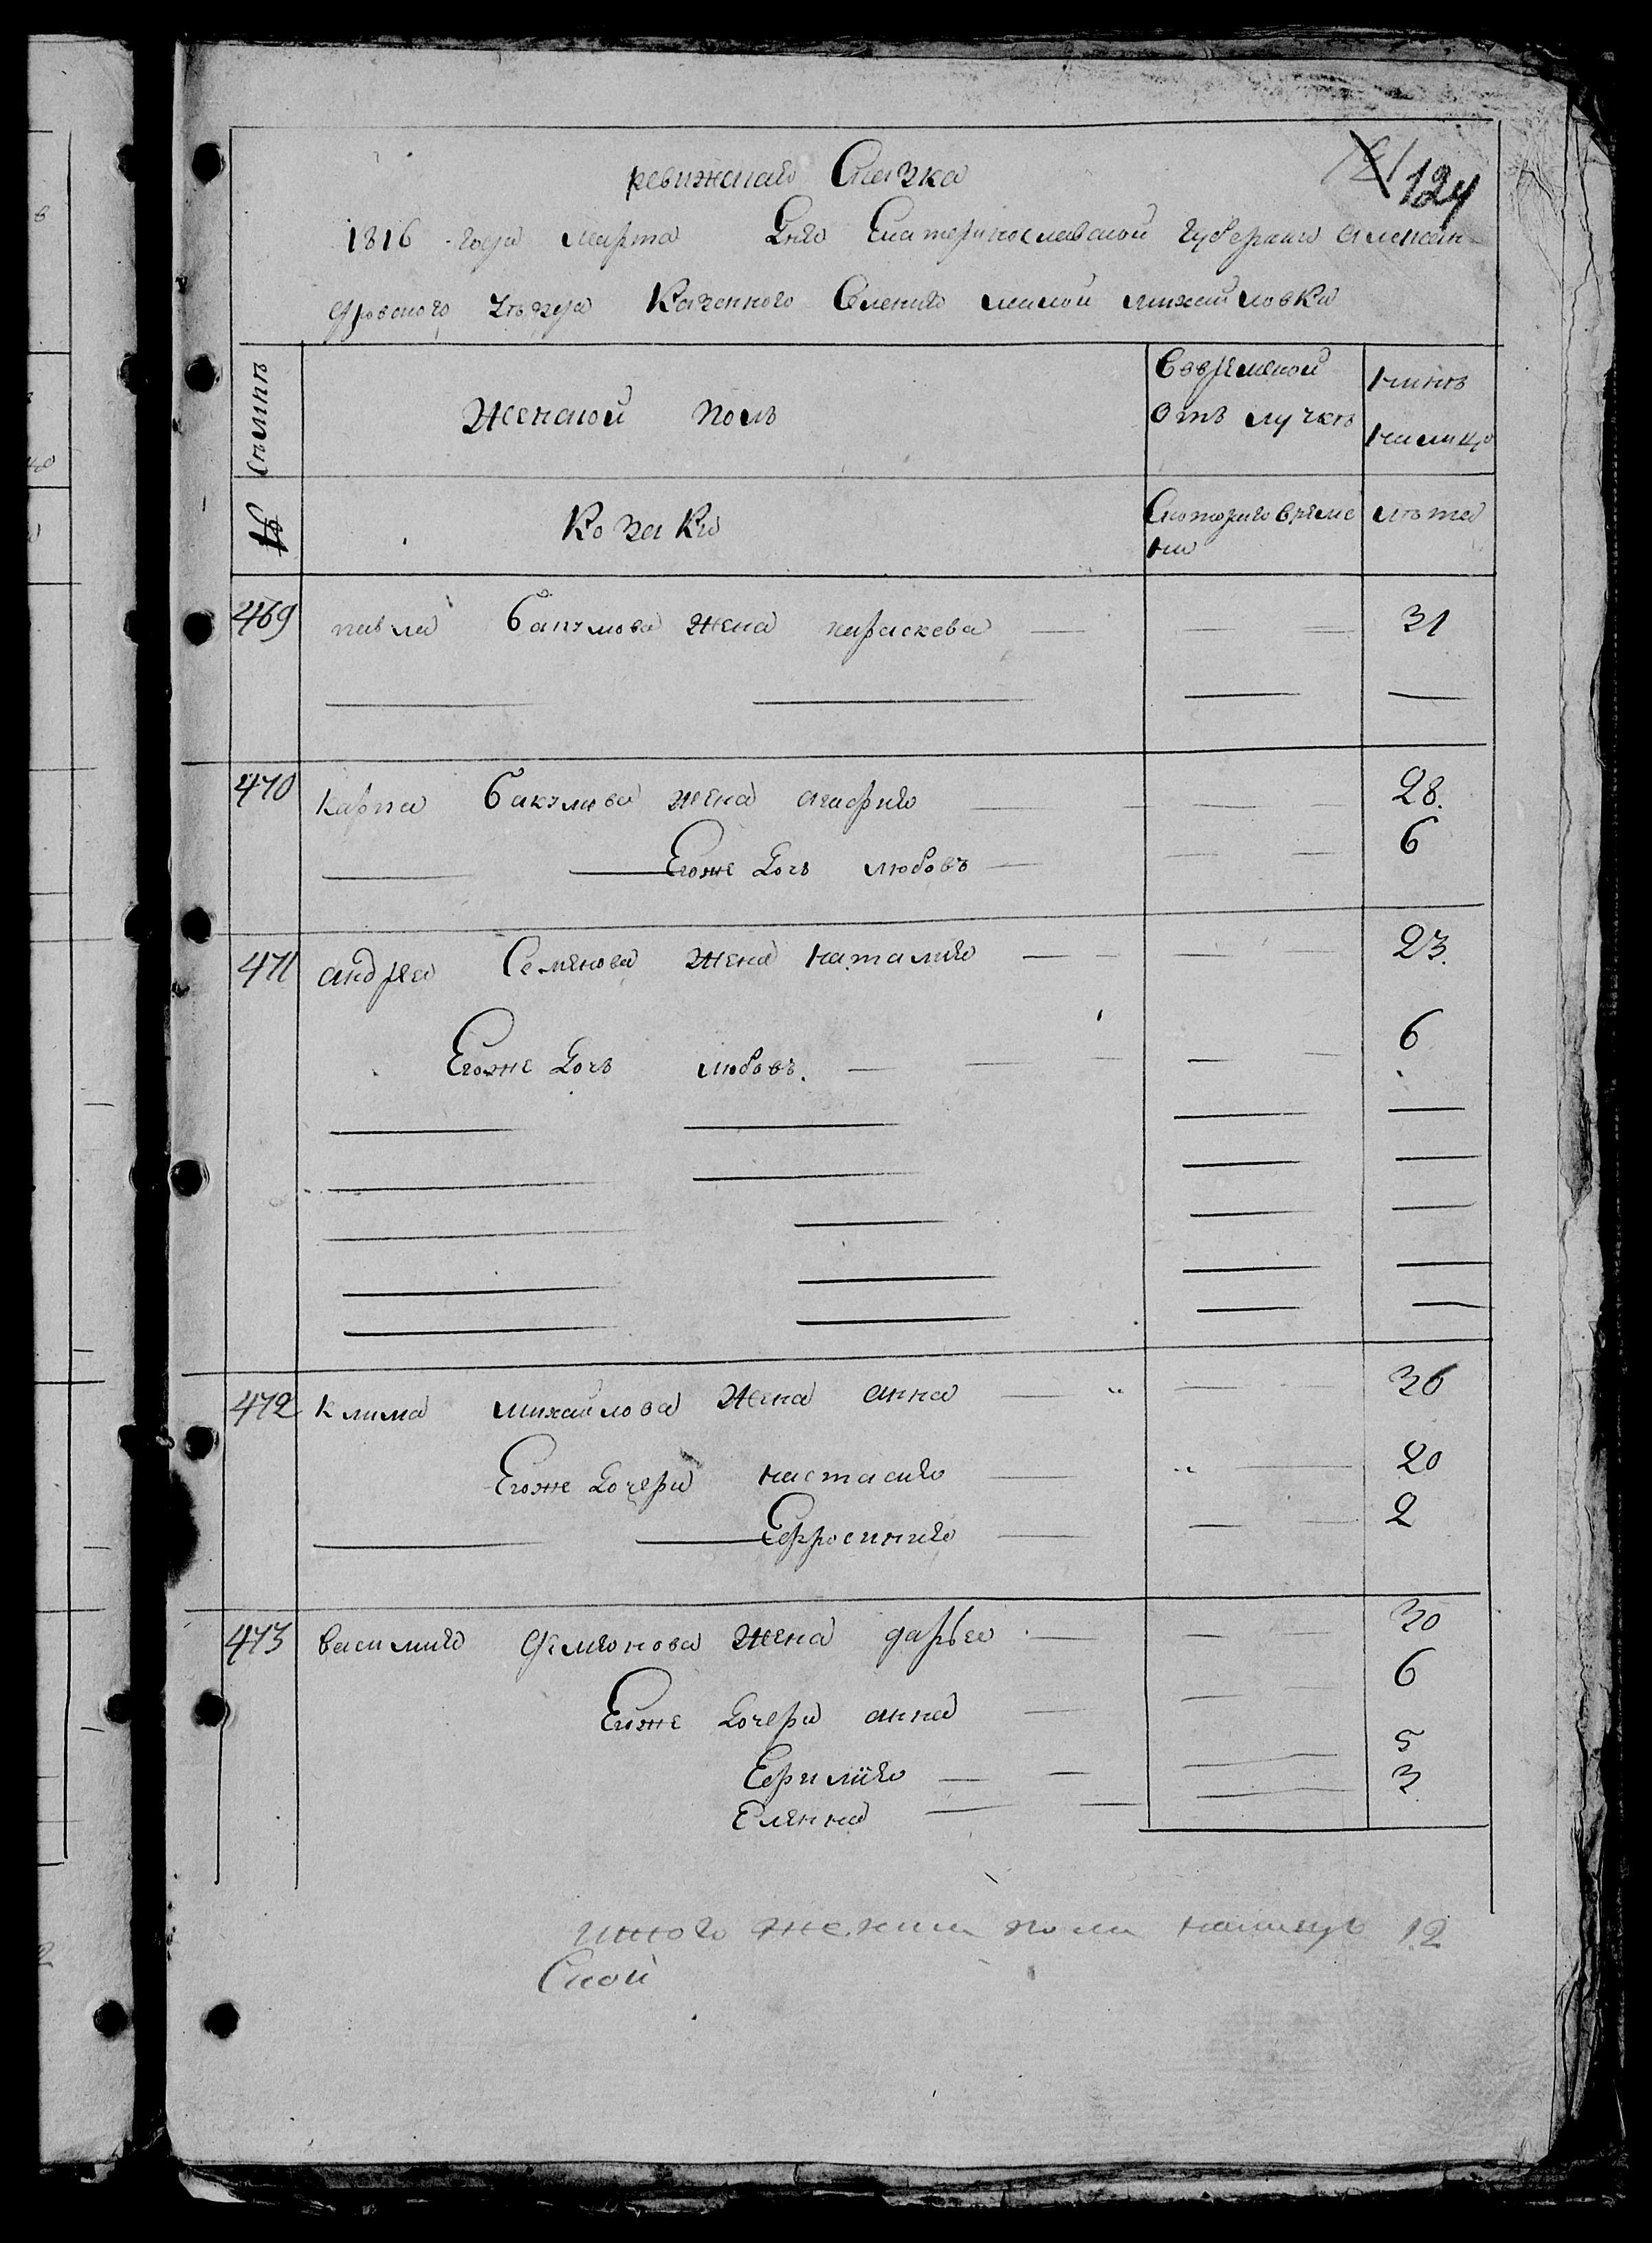 124
ревижская Сказка
1816 года марта дня Екатеринославской губернии Алексан
дровского уезда Казенного Селения малой михайловки
Съмиъ
Женской полъ
Вовременой отъ лучкъ
ныне налицо
№
Козаки
Скоторого времени
лѣта
469 павла Бакумова жена параскева 31
470 карпа Бакумова жена агафия 28.
Егоже дочь любовъ 6
471 андрея Семенова жена наталия 23.
Егоже дочь любовъ. 6
472 клима михайлова жена анна 36
Егоже дочери настасия 20
Ефросиния 2
473 василия филионова жена дарья 30
Егоже дочери анна 6
Ефимия 5
Еленна 3
итого женска пола налицо 12
Ской